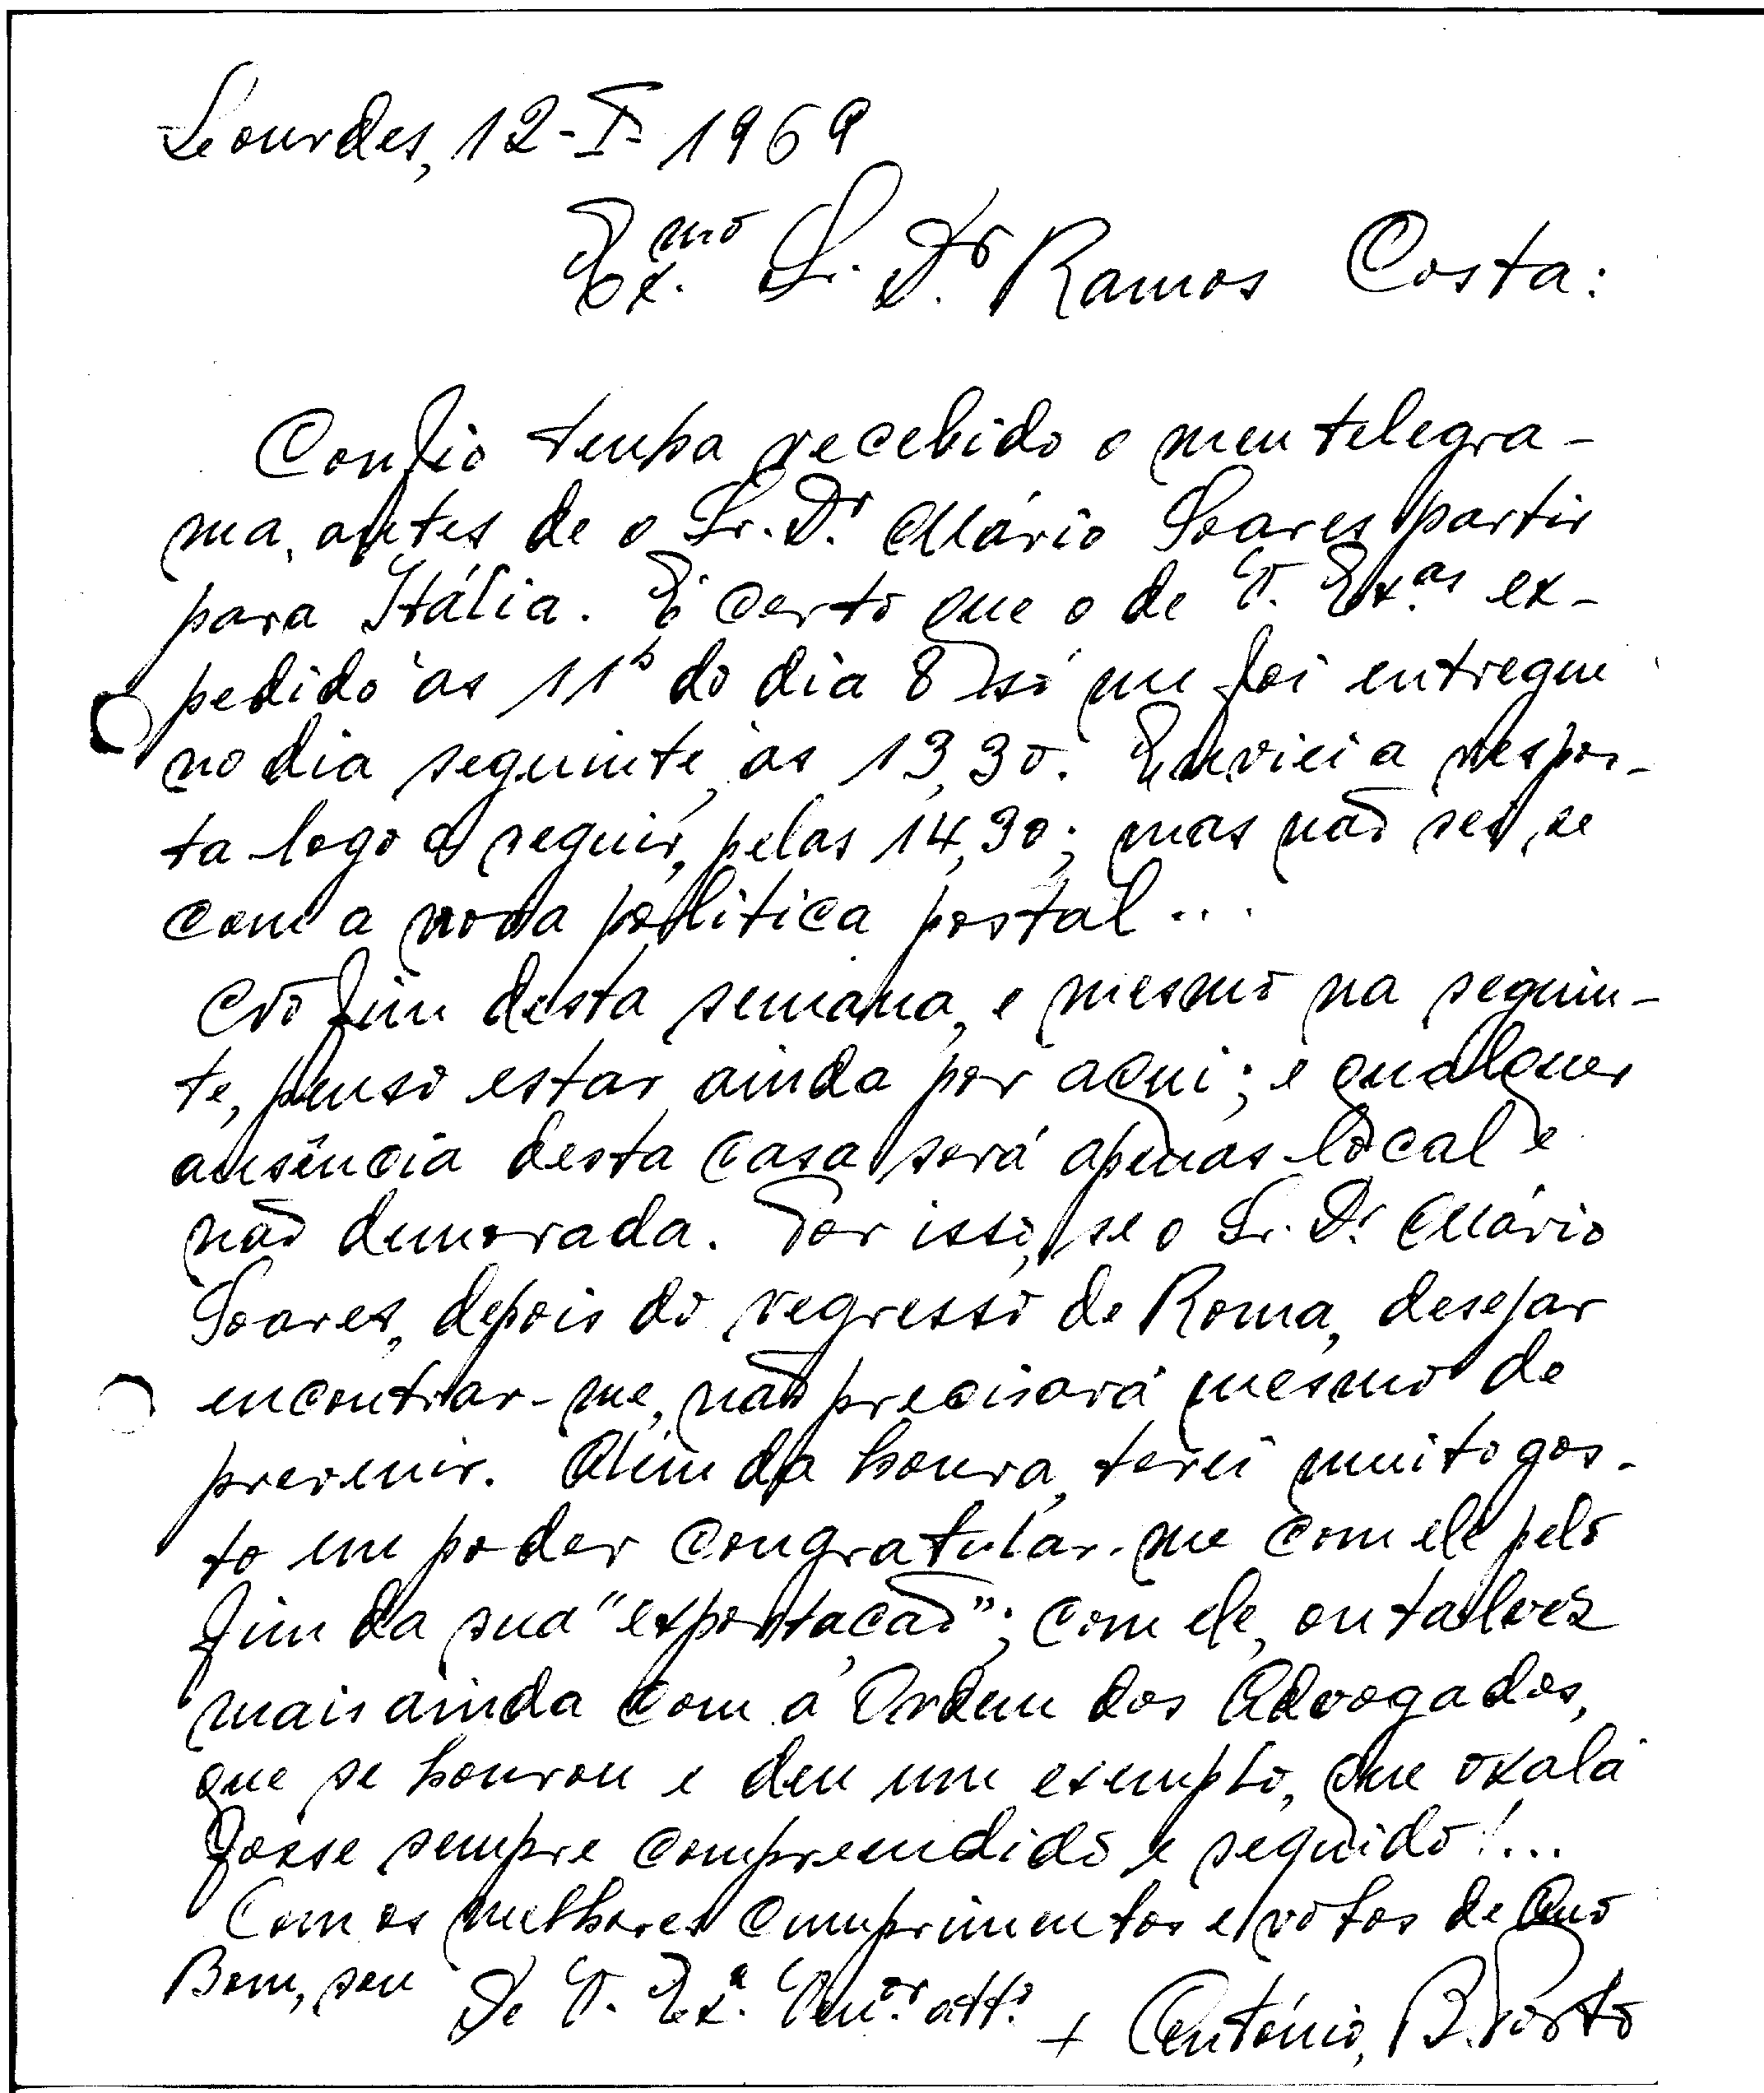 Lourdes, 12-I-1969
Ex.mo Sr. Dr. Ramos Costa:
Confio tenha recebido o meu telegra-
ma, antes de o Sr. Dr. Mário Soares partir
para Itália. É certo que o de V. Ex.as ex-
pedido às 11h do dia 8 só me foi entregue
no dia seguinte, às 13,30. Enviei a respos-
ta logo a seguir, pelas 14,30; mas não sei, se
com a nova política postal...
No fim desta semana, e mesmo na seguin-
te, penso estar ainda por aqui; e qualquer
ausência desta casa será apenas local e
não demorada. Por isso, se o Sr. Dr. Mário
Soares, depois do regresso de Roma, desejar
encontrar-me, não precisará mesmo de
prevenir. Além da honra, terei muito gos-
to em poder congratular-me com ele pelo
fim da sua "exportação"; com ele, ou talvez
mais ainda com a Ordem dos Advogados,
que se honrou e deu um exemplo, que oxalá
fosse sempre compreendido e seguido!...
Com os melhores cumprimentos e votos de Ano
Bom, sou
De V. Ex.a Ven.or att.o + António, B. Porto